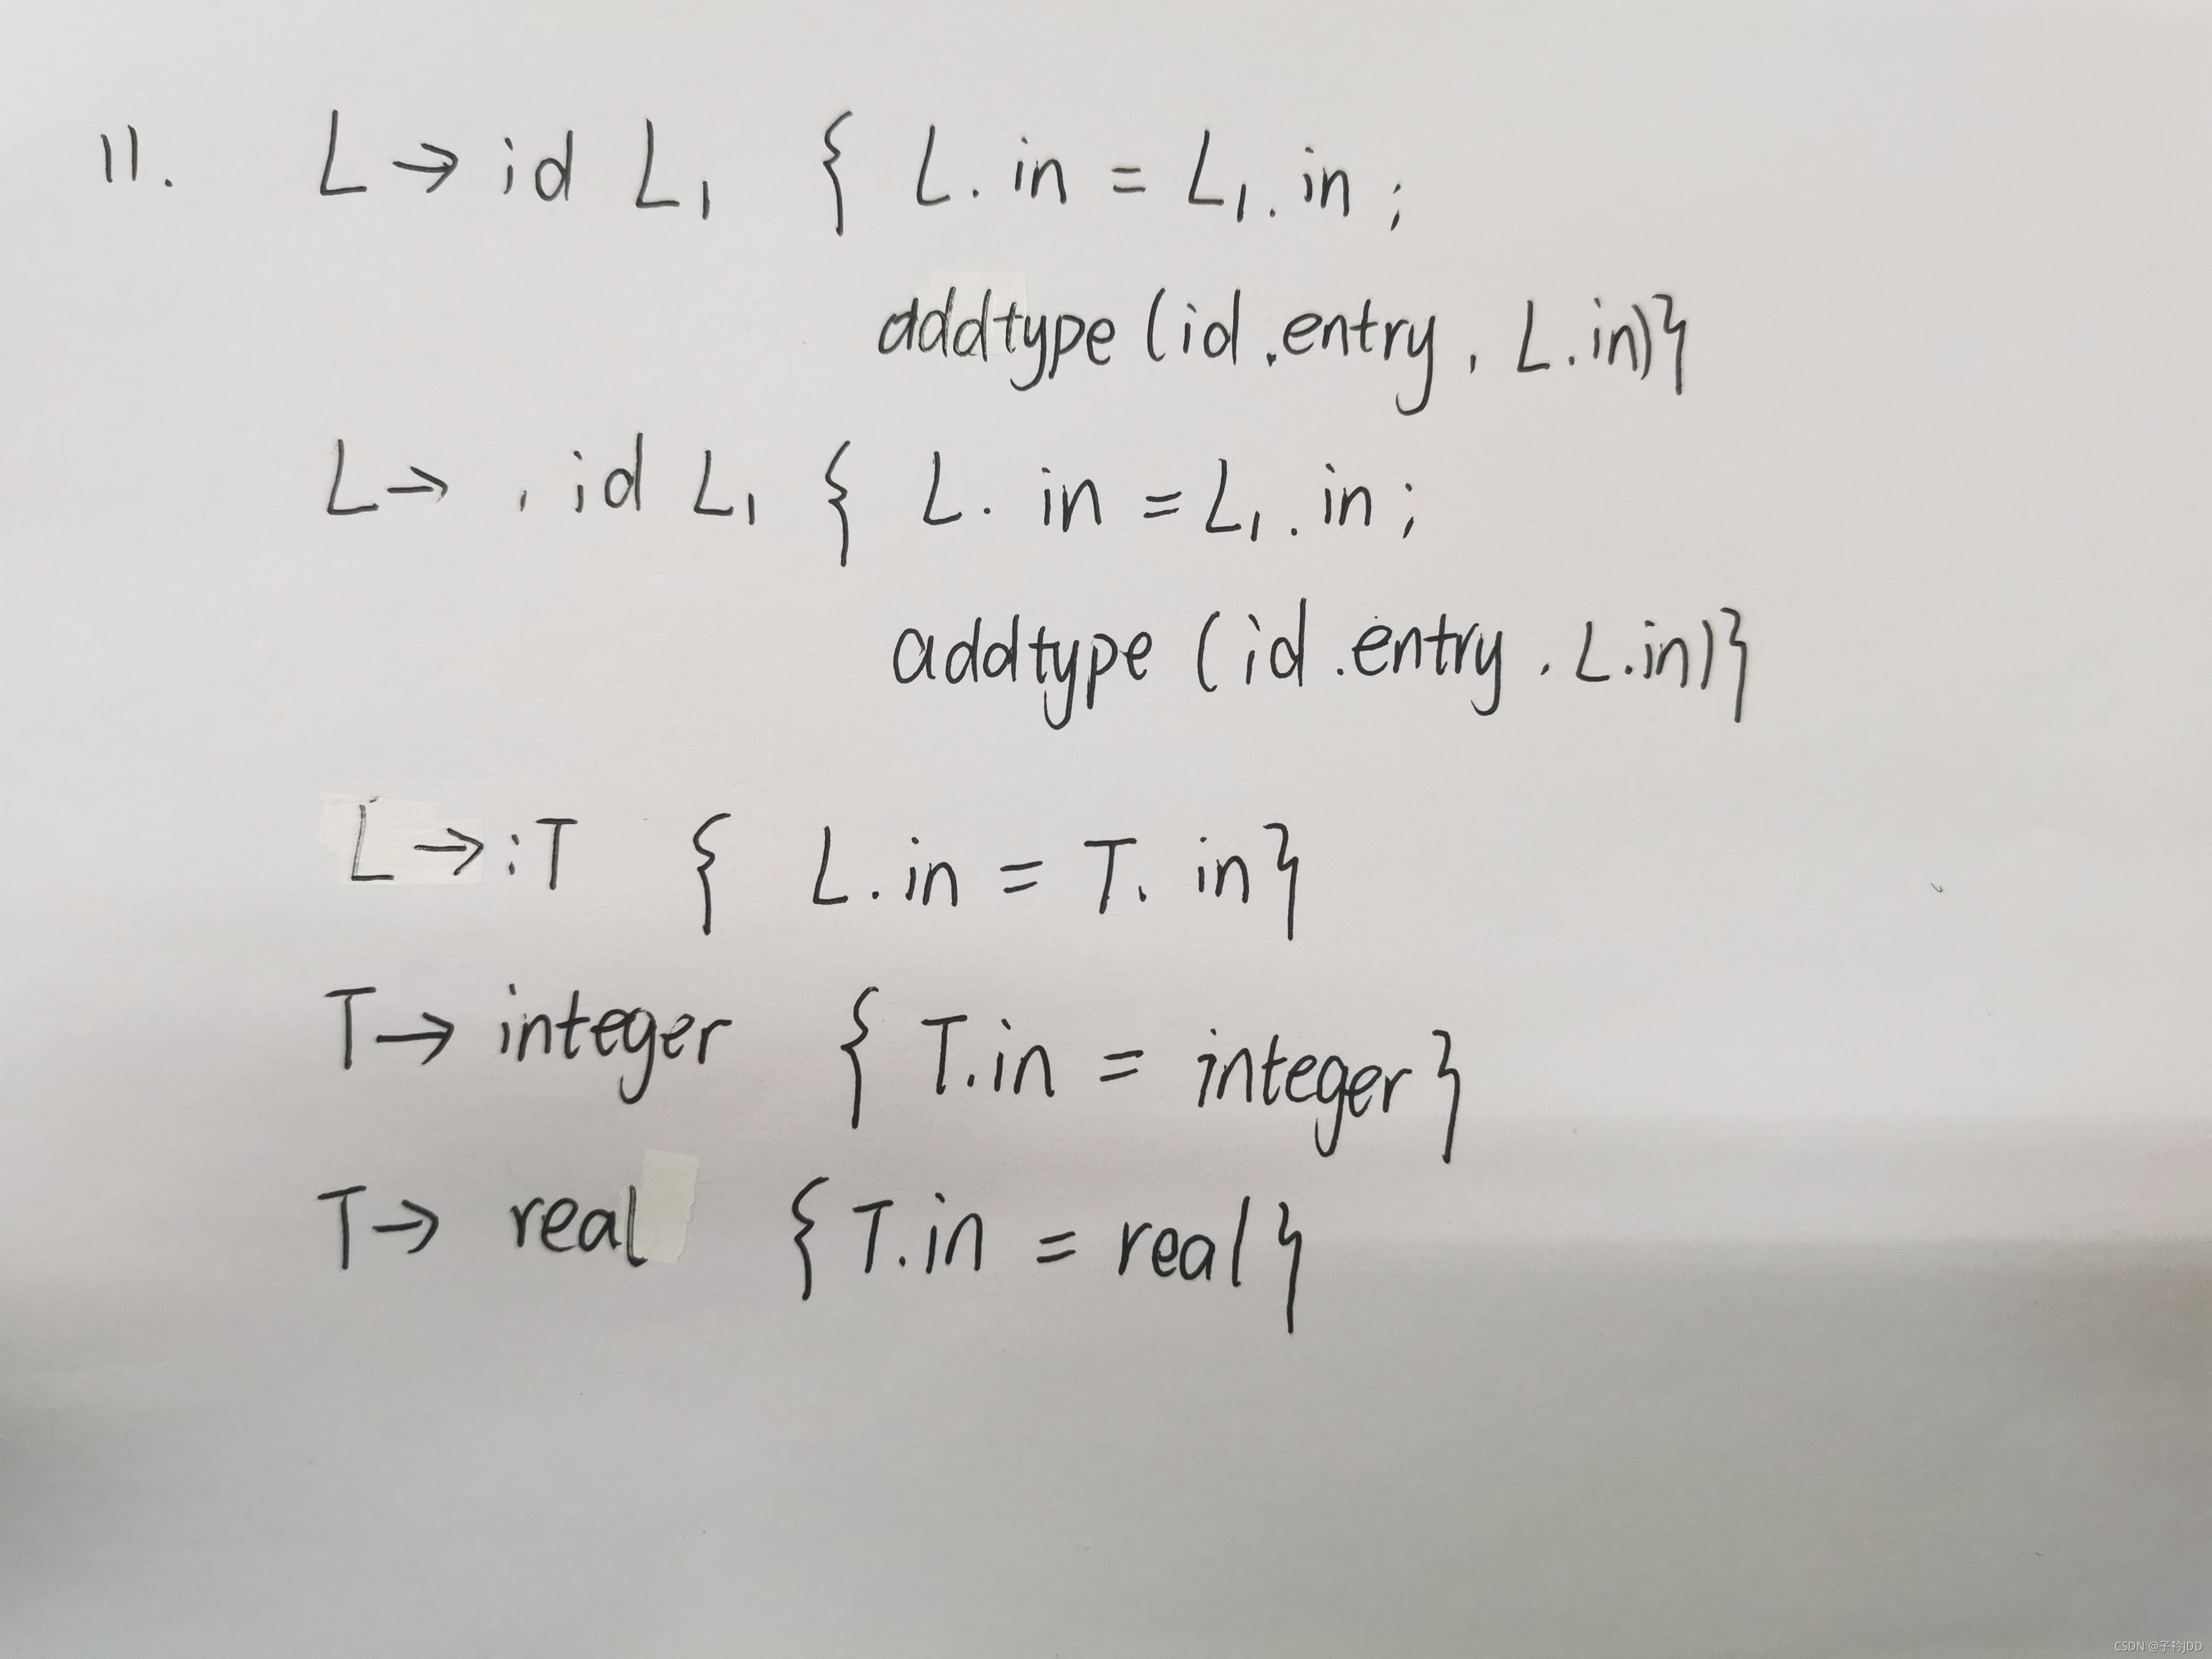 11. L → id L₁ { L.in = L₁.in ;
addtype (id.entry , L.in)}
L → , id L₁ { L. in = L₁.in ;
addtype (id.entry , L.in)}
L → :T { L.in = T. in}
T → integer { T.in = integer}
T → real {T.in = real}
CSDN @子衿JDD